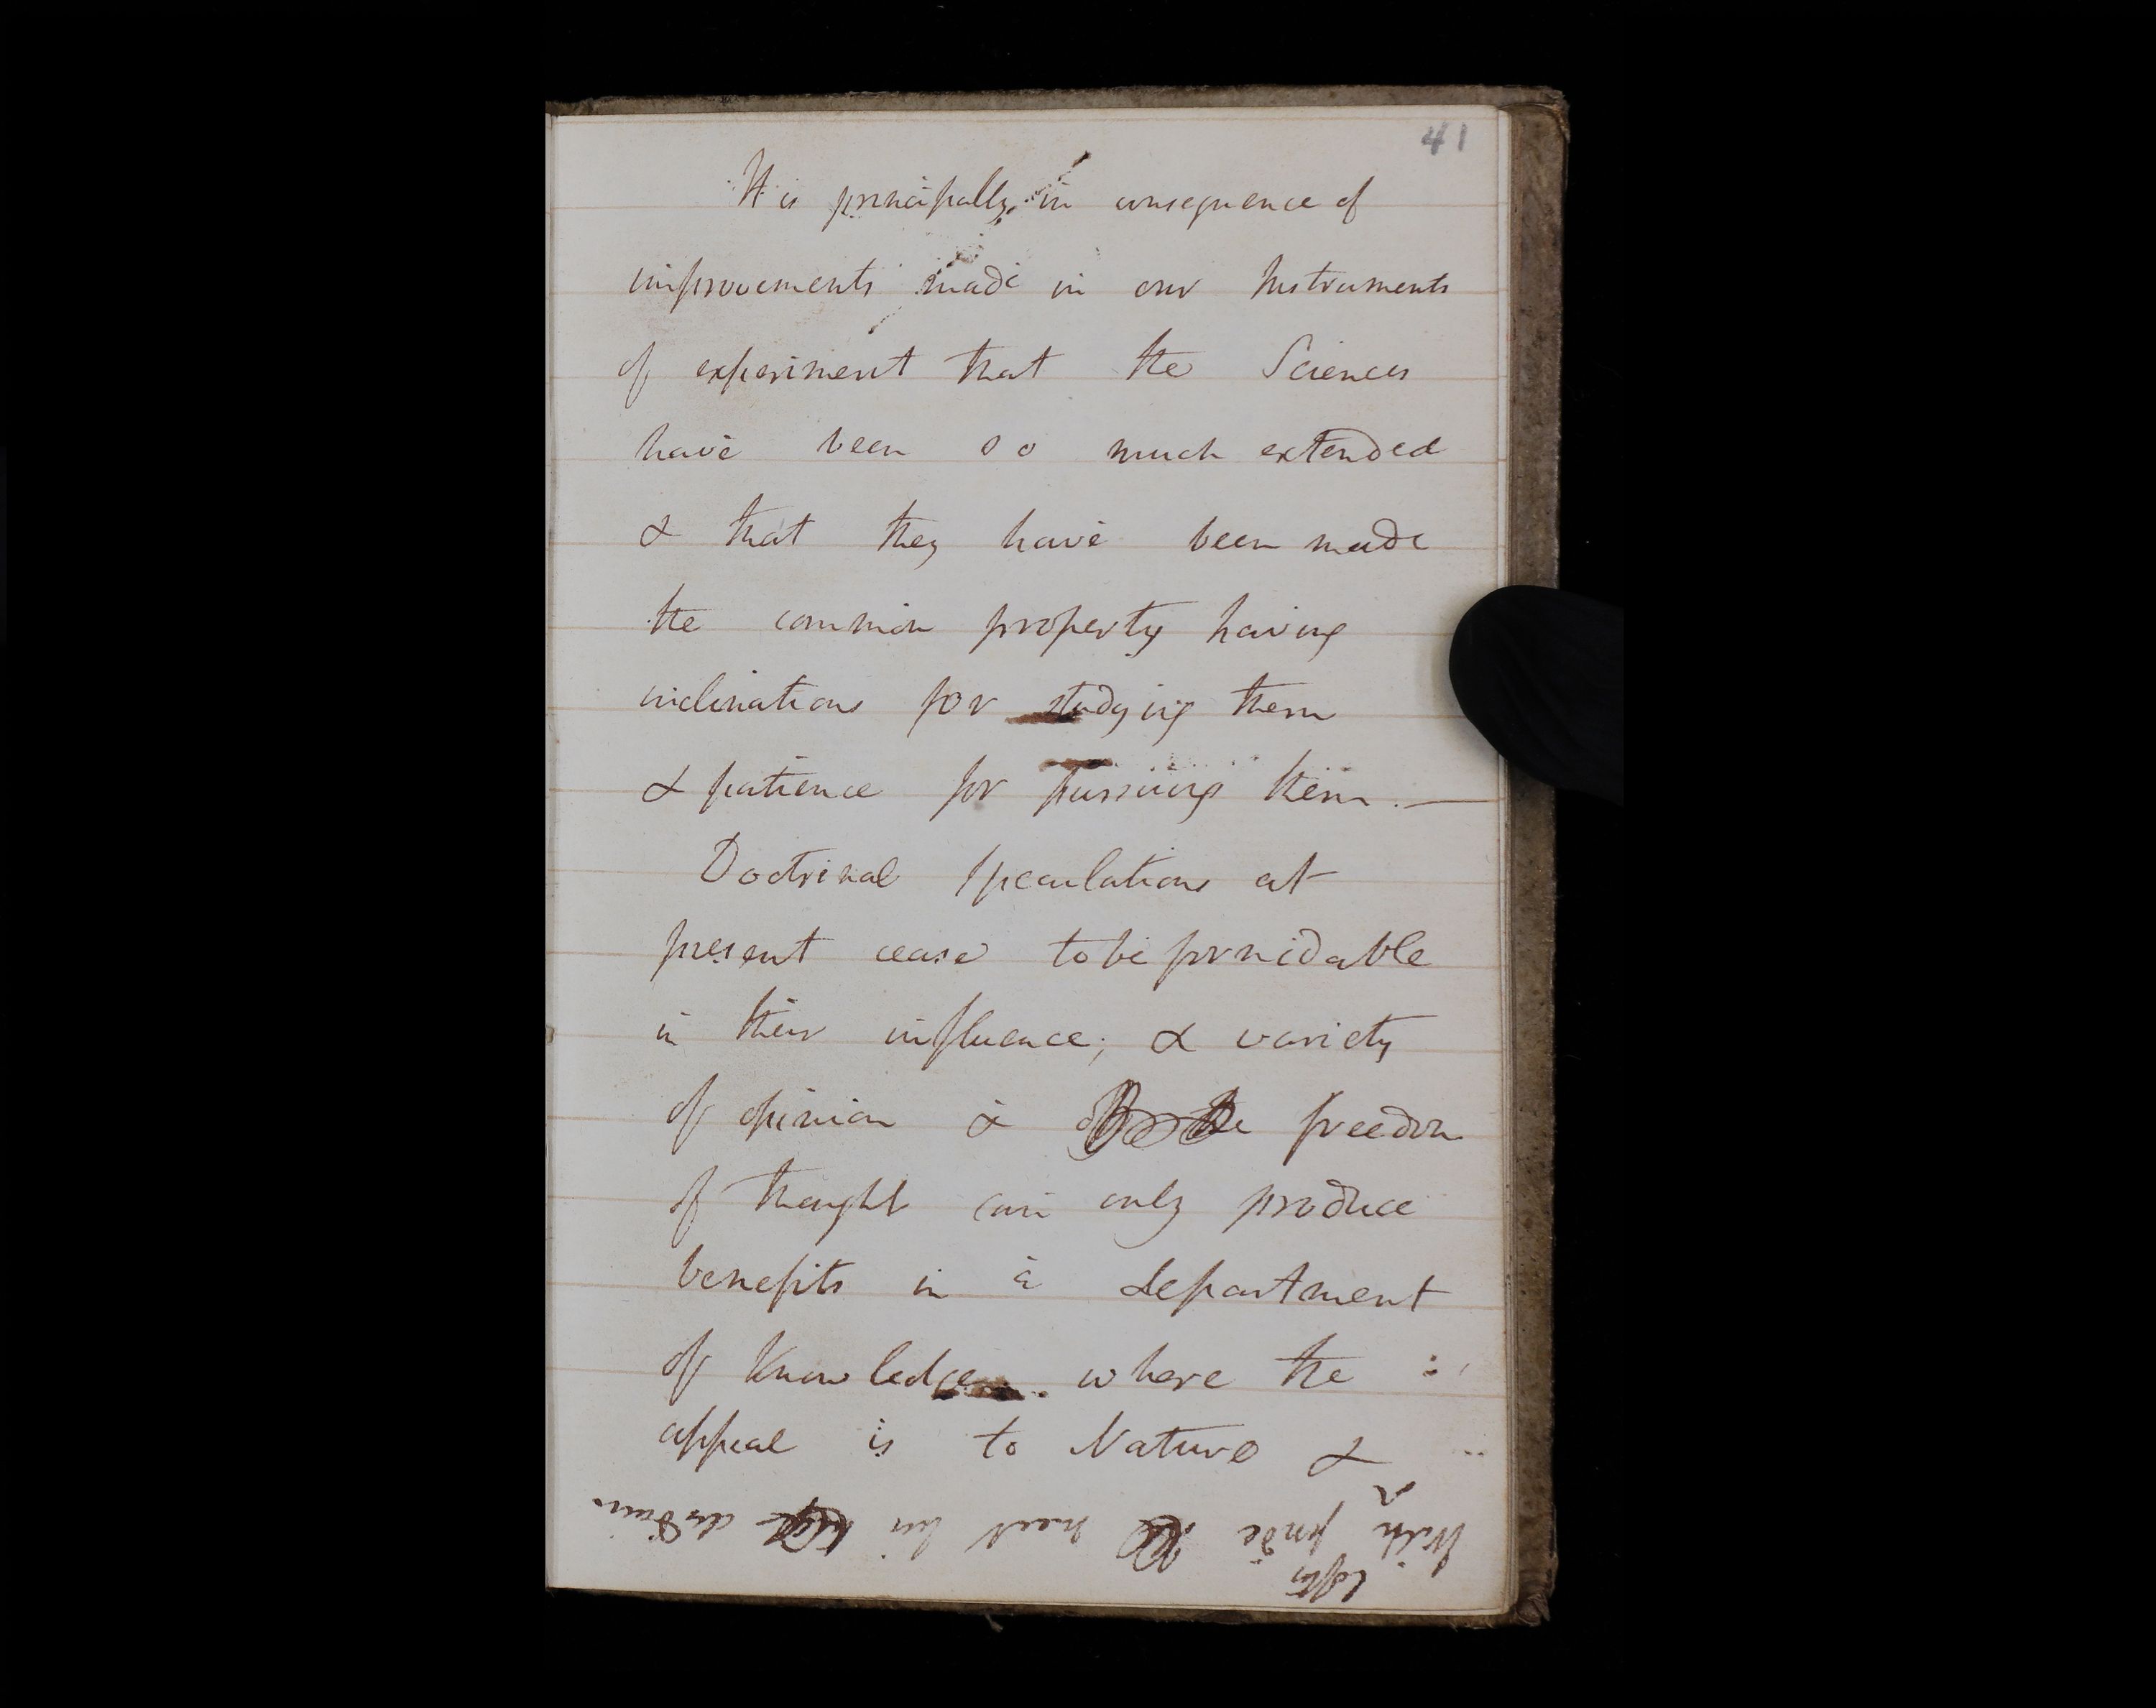 41
It is principally, in consequence of
improvements made in our Instruments
of experiment that the Sciences
have been so much extended
& that they have been made
the common property having
inclinations for studying them
& patience for pursuing them. —
Doctrinal speculations at
present cease to be formidable
in their influence; & variety
of opinion & freedom
of thought can only produce
benefits in a department
of Knowledge where the
appeal is to Nature &
lofty
With pride meet his disdain.